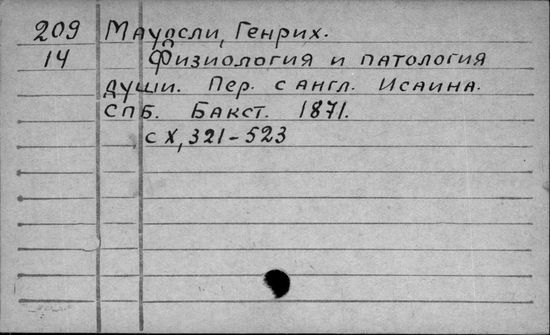 209 Маудсли, Генрих.
14 Физиология и патология
души. Пер. с англ. Исаина.
СПБ. Бакст. 1871.
с X, 321-523